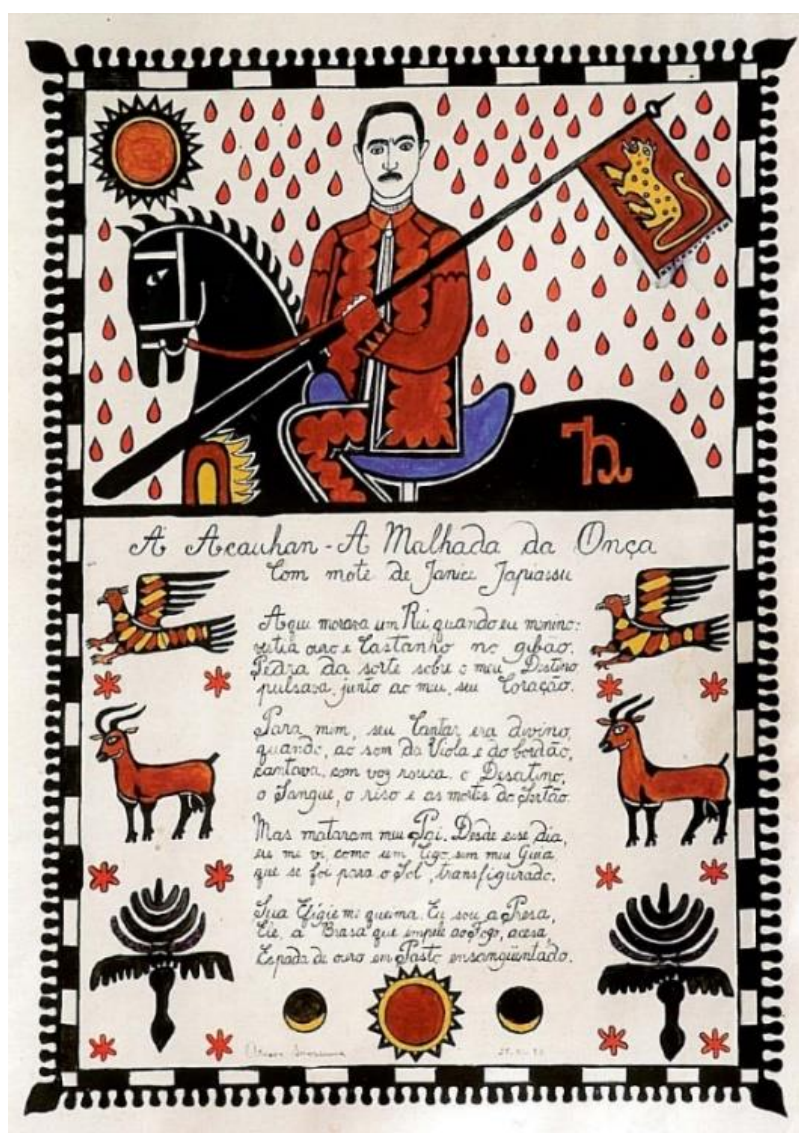 A Acauhan - A Malhada da Onça
Com mote de Janice Japiassu
Aqui morava um Rei, quando eu menino:
vestia ouro e Castanho no gibão.
Pedra da sorte sobre o meu Destino,
pulsava, junto ao meu, seu Coração.
Para mim, seu Cantar era divino,
quando, ao som da Viola e do bordão,
cantava, com voz rouca, o Desatino,
o Sangue, o riso e as mortes do Sertão.
Mas mataram meu Pai. Desde esse dia,
eu me vi, como um Cego, sem meu Guia,
que se foi para o Sol, transfigurado.
Sua Efígie me queima. Eu sou a Presa,
Ele, a Brasa que impele ao Fogo, acesa,
Espada de ouro em Pasto ensangüentado.